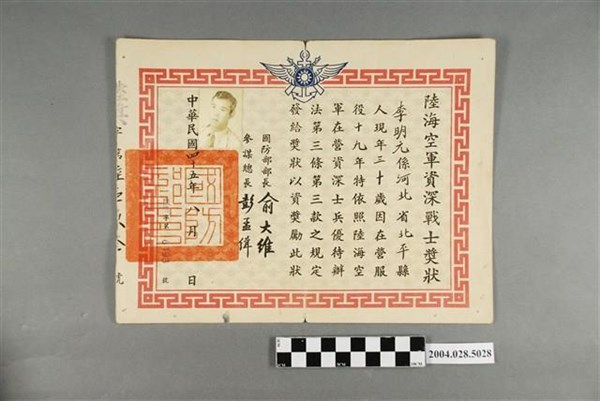 陸海空軍資深戰士獎狀
李明元係河北省北平縣
人現年三十歲因在營服
役十九年特依照陸海空
軍在營資深士兵優待辦
法第三條第三款之規定
發給獎狀以資獎勵此狀
國防部部長 俞大維
參謀總長 彭孟緝
中華民國四十五年八月 日
號
2004.028.5028